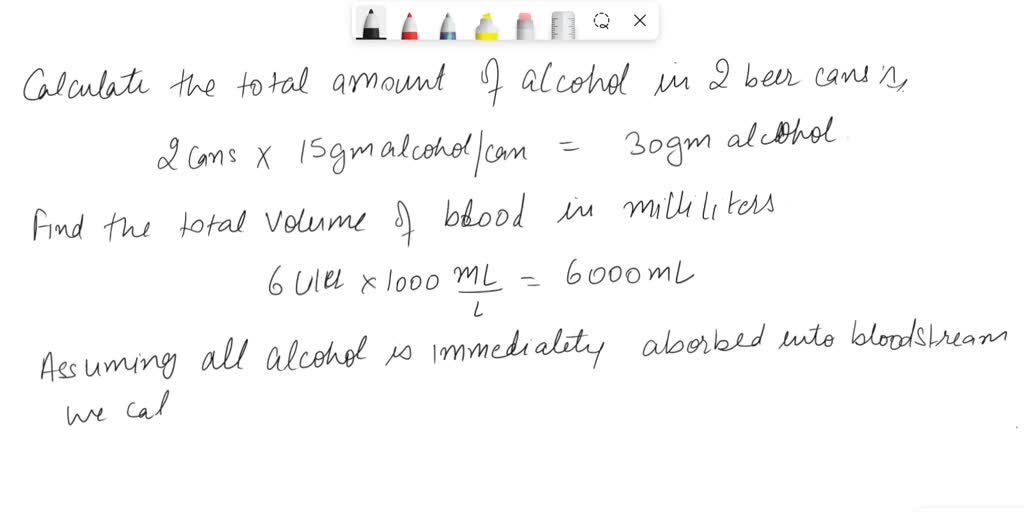 Calculate the total amount of alcohol in 2 beer cans
2 cans x 15gm alcohol/can = 30gm alcohol
Find the total volume of blood in milliliters
6 x 1000 mL/L = 6000 mL
Assuming all alcohol is immediality aborbed into bloodstream
we cal